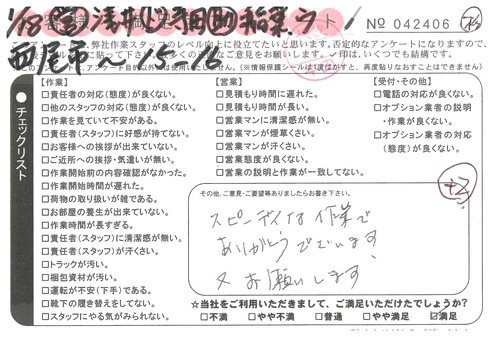 No 042406
弊社作業スタッフのレベル向上に役立てたいと思います。否定的なアンケートになりますので、
ご意見をお願いします。✓印は、いくつでも結構です。
(※情報保護シールは1度はがすと、再度貼りなおすことはできません)
西尾市〜
チェックリスト
【作業】
□責任者の対応(態度)が良くない。
□他のスタッフの対応(態度)が良くない。
□作業を見ていて不安がある。
□責任者(スタッフ)に好感が持てない。
□お客様への挨拶が出来ていない。
□ご近所への挨拶・気遣いが無い。
□作業開始前の内容確認がなかった。
□作業開始時間が遅れた。
□荷物の取り扱いが雑である。
□お部屋の養生が出来ていない。
□作業時間が長すぎる。
□責任者(スタッフ)に清潔感が無い。
□責任者(スタッフ)が汗くさい。
□トラックが汚い。
□梱包資材が汚い。
□運転が不安(下手)である。
□靴下の履き替えをしてない。
□スタッフにやる気が感じられない。
【営業】
□見積もり時間に遅れた。
□見積もり時間が長い。
□営業マンに清潔感が無い。
□営業マンが煙草くさい。
□営業マンが汗くさい。
□営業態度が良くない。
□営業の説明と作業が一致してない。
【受付・その他】
□電話の対応が良くない。
□オプション業者の説明
・作業が良くない。
□オプション業者の対応
(態度)が良くない。
+2
その他、ご意見・ご要望等ありましたらお書き下さい。
スピーディな作業で
ありがとうございます
又お願いします。
☆当社をご利用いただきまして、ご満足いただけたでしょうか?
□不満 □やや不満 □普通 □やや満足 ☑満足